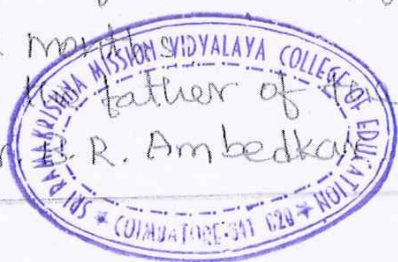 months
father of
R. Ambedkar
SRI RAMAKRISHNA MISSION VIDYALAYA COLLEGE OF EDUCATION
★ COIMBATORE-641 020 ★